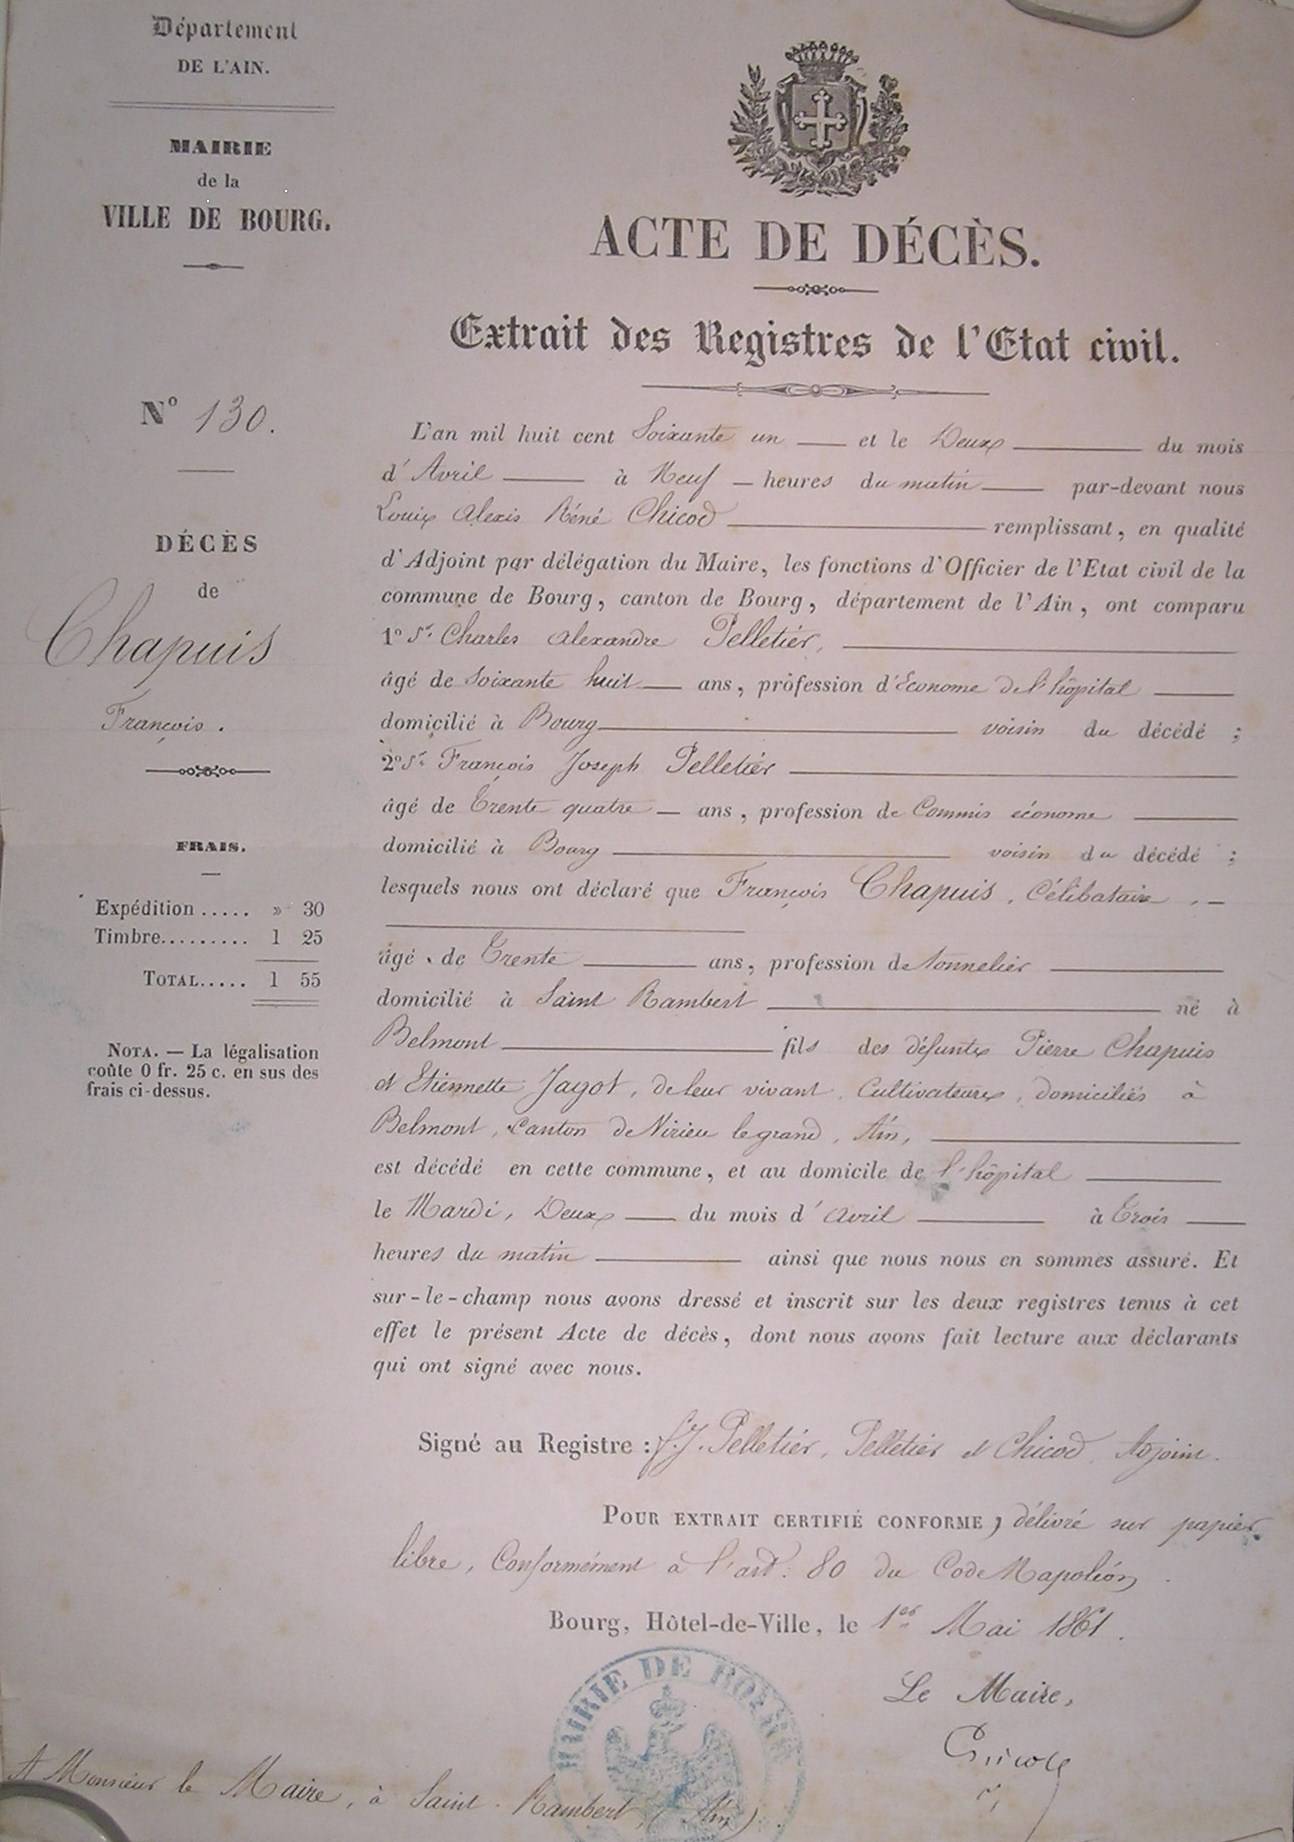 Département
DE L'AIN.
MAIRIE
de la
VILLE DE BOURG.
N° 130.
DÉCÈS
de
Chapuis
François.
FRAIS.
Expédition ..... » 30
Timbre......... 1 25
TOTAL..... 1 55
NOTA. — La légalisation
coûte 0 fr. 25 c. en sus des
frais ci-dessus.
ACTE DE DÉCÈS.
Extrait des Registres de l'Etat civil.
L'an mil huit cent Soixante un et le Deux du mois
d'Avril à Neuf heures du matin par-devant nous
Louis Alexis Réné Chicod remplissant, en qualité
d'Adjoint par délégation du Maire, les fonctions d'Officier de l'Etat civil de la
commune de Bourg, canton de Bourg, département de l'Ain, ont comparu
1° Sr. Charles Alexandre Pelletier,
âgé de Soixante huit ans, profession d'Econome de l'hôpital
domicilié à Bourg voisin du décédé ;
2° Sr. François Joseph Pelletier
âgé de Trente quatre ans, profession de Commis économe
domicilié à Bourg voisin du décédé ;
lesquels nous ont déclaré que François Chapuis, Célibataire,
âgé de Trente ans, profession de tonnelier
domicilié à Saint Rambert né à
Belmont fils des défunts Pierre Chapuis
et Etiennette Jagot, de leur vivant Cultivateurs, domiciliés à
Belmont, Canton de Virieu le grand, Ain,
est décédé en cette commune, et au domicile de l'hôpital
le Mardi, Deux du mois d'avril à Trois
heures du matin ainsi que nous nous en sommes assuré. Et
sur-le-champ nous avons dressé et inscrit sur les deux registres tenus à cet
effet le présent Acte de décès, dont nous avons fait lecture aux déclarants
qui ont signé avec nous.
Signé au Registre : f. J. Pelletier, Pelletier et Chicod, Adjoint.
POUR EXTRAIT CERTIFIÉ CONFORME, délivré sur papier
libre, Conformément à l'art. 80 du Code Napoléon.
Bourg, Hôtel-de-Ville, le 1er Mai 1861.
Le Maire,
MAIRIE DE BOURG
A Monsieur le Maire, à Saint-Rambert, (Ain)